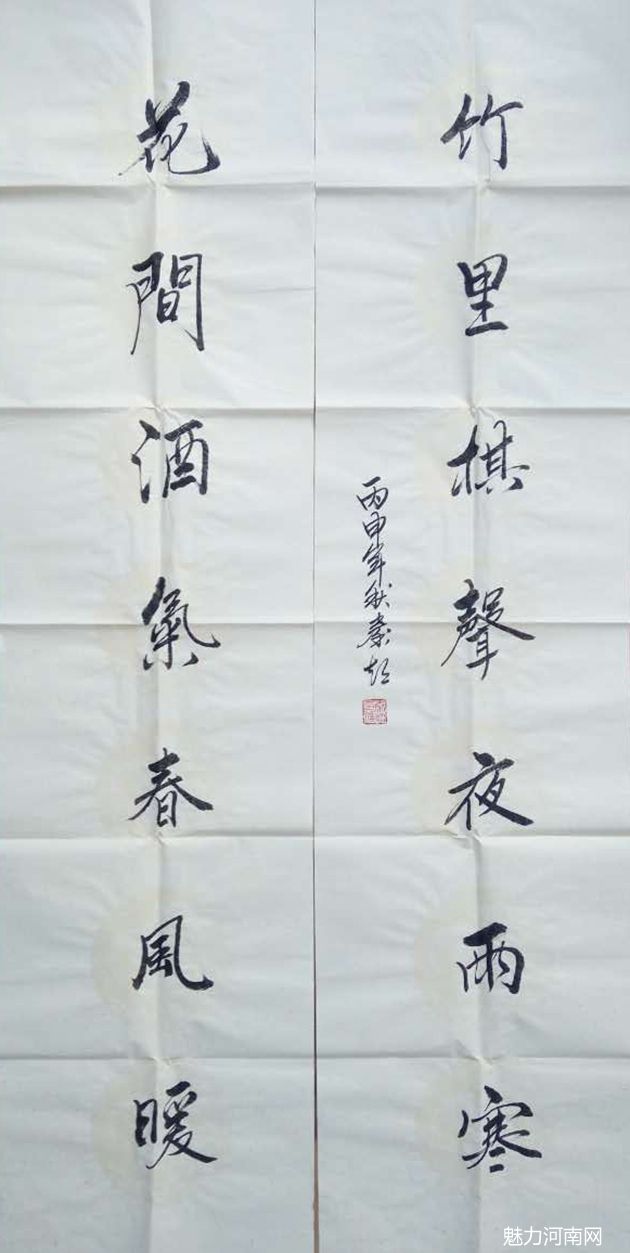 花間酒氣春風暖
竹里棋聲夜雨寒
丙申年秋秦
魅力河南网